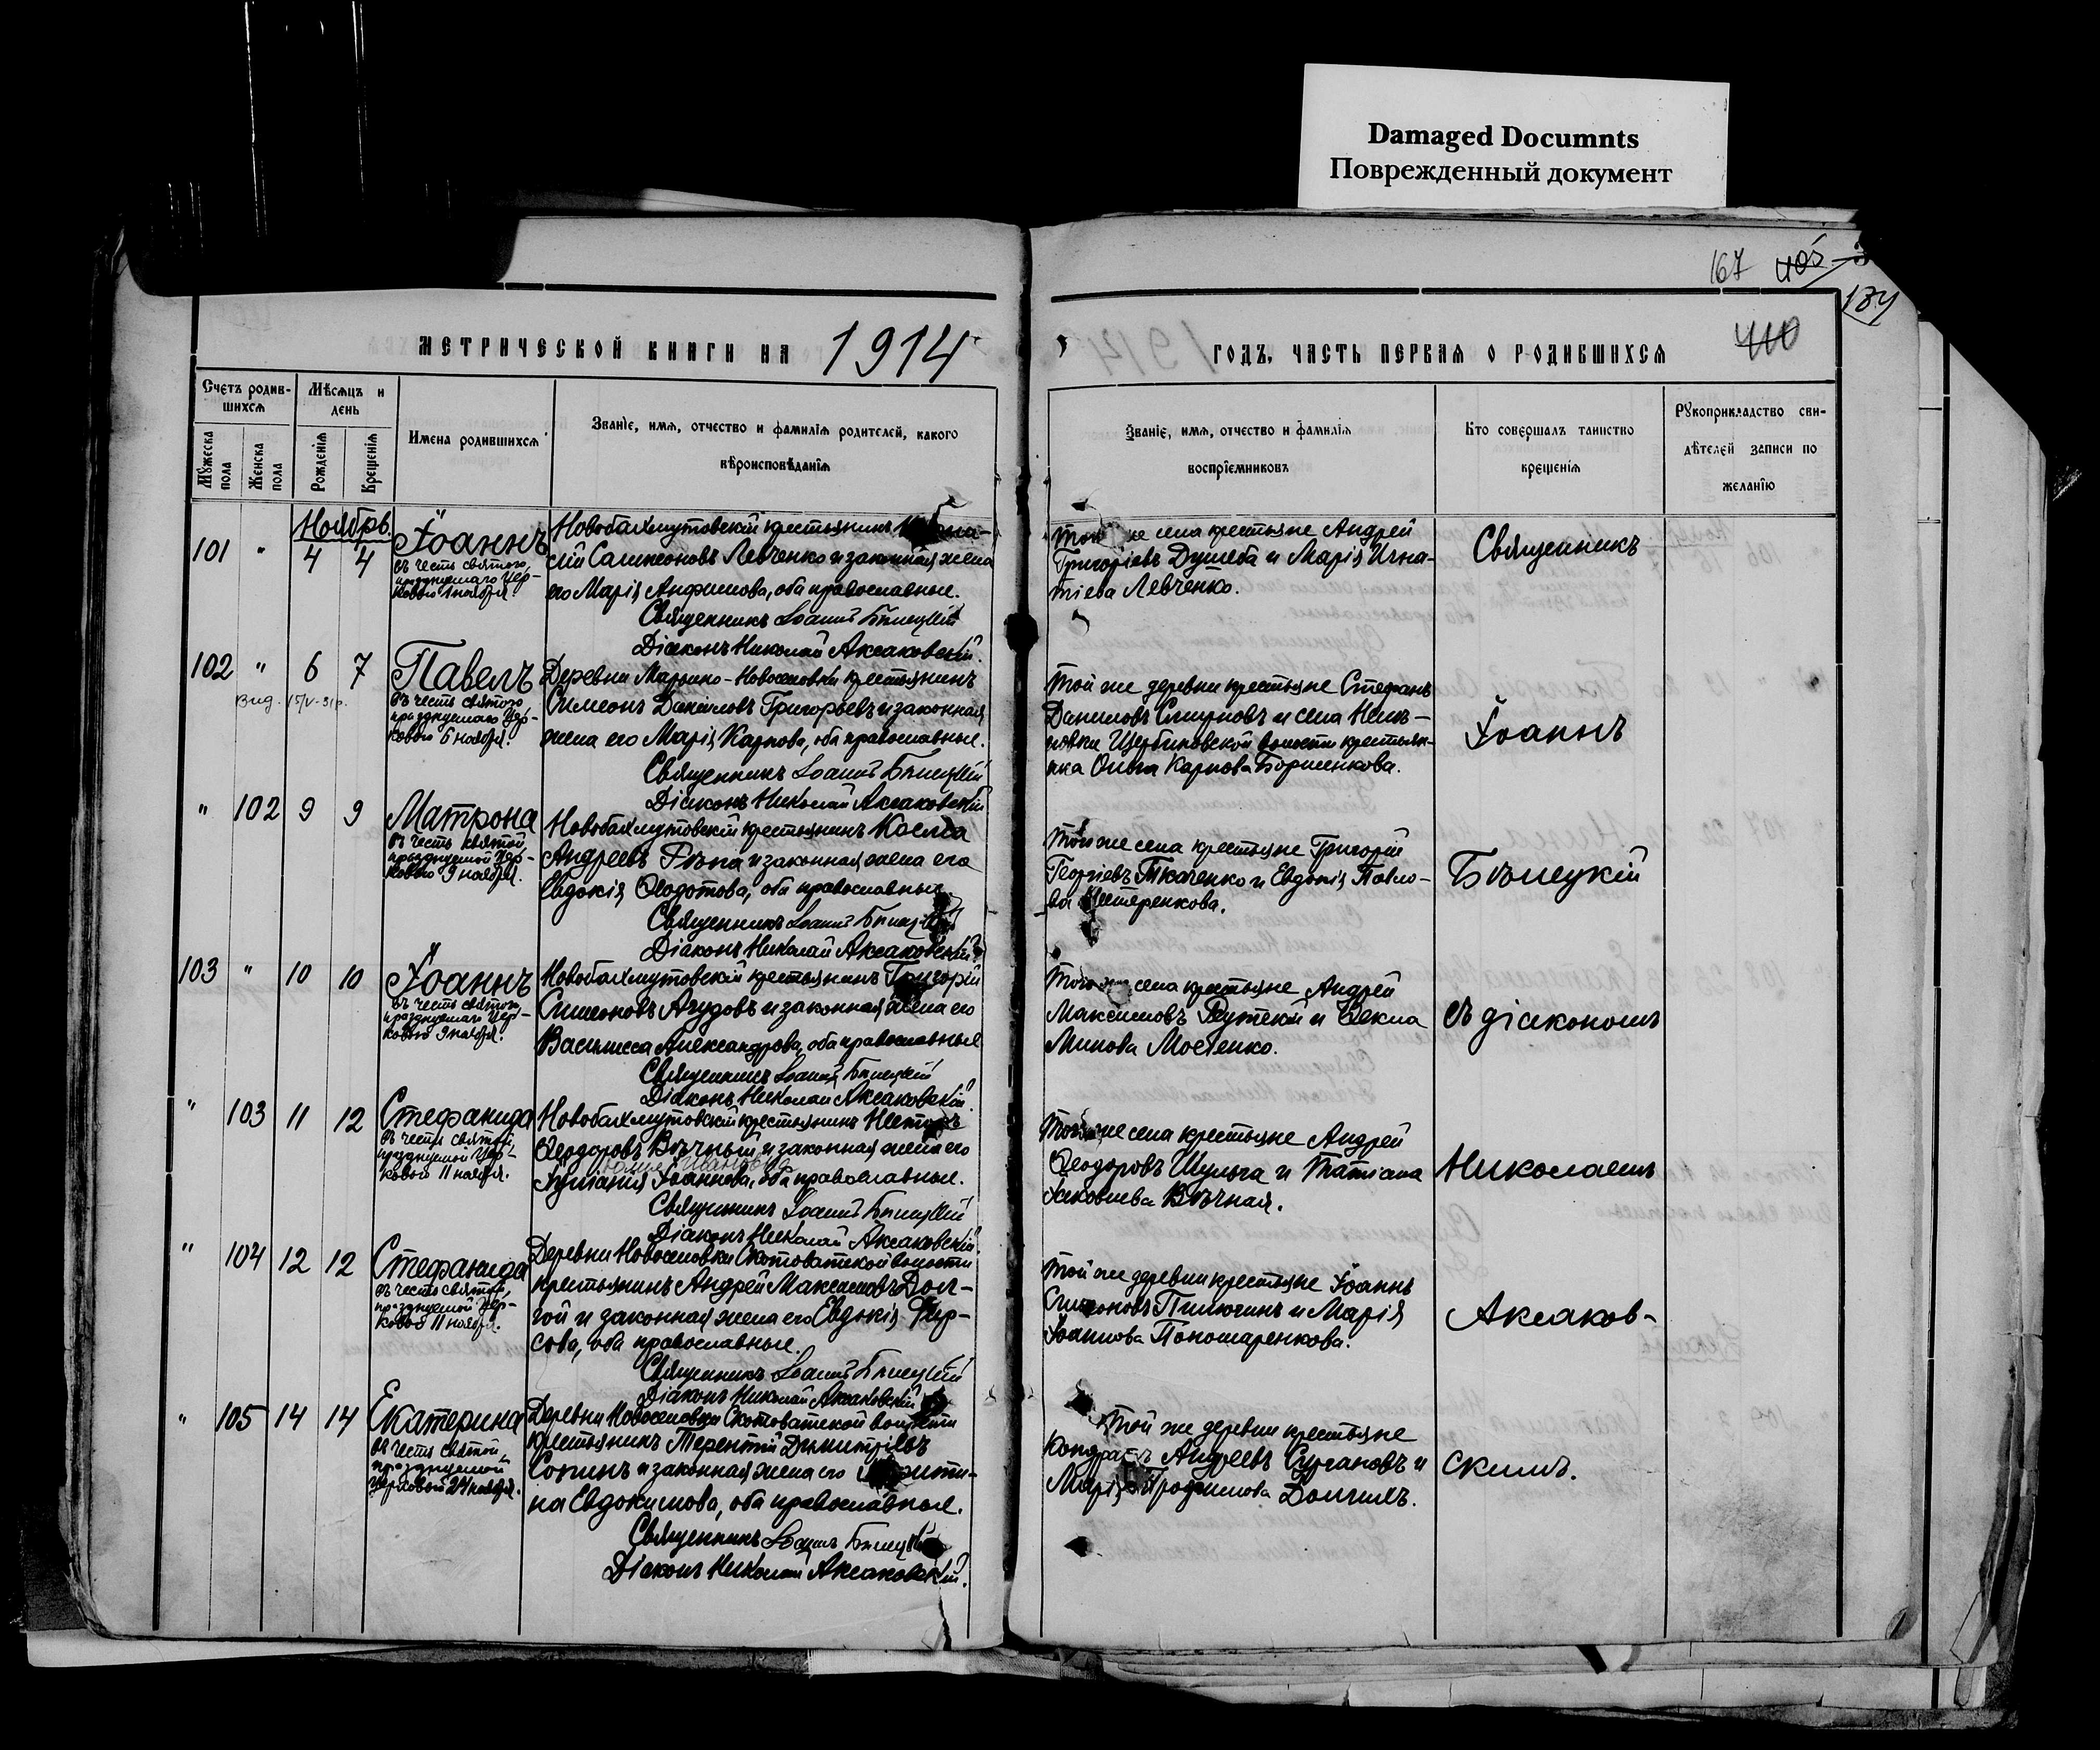 Damaged Documnts
Поврежденный документ
167 405
184
МЕТРИЧЕСКОЙ КНИГИ НА 1914
ГОДЪ, ЧАСТЬ ПЕРВАЯ О РОДИВШИХСЯ
410
Счетъ родив-
шихся
Мѣсяцъ и
день
Мужеска
пола
Женска
пола
Рожденія
Крещенія
Имена родившихся
Званіе, имя, отчество и фамилія родителей, какого
вѣроисповѣданія
Званіе, имя, отчество и фамилія
воспріемниковъ
Кто совершалъ таинство
крещенія
Рукоприкладство сви-
дѣтелей записи по
желанію
Ноябрь.
101 " 4 4
Іоаннъ
въ честь святого,
празднуемаго Цер-
ковью 1 ноября.
Новобахмутовскій крестьянинъ
сій Самсоновъ Левченко и законная жена
его Марія Анфимова, оба православные.
Священникъ Іоаннъ Бѣлецкій
Діаконъ Николай Аксаковскій.
же села крестьяне Андрей
Григоріевъ Душеба и Марія Игна-
тіева Левченко.
Священникъ
102 " 6 7
Павелъ
въ честь святого,
празднуемаго Цер-
ковью 6 ноября.
Вид. 15/V-31 р.
Деревни Марьино-Новоселовки крестьянинъ
Симеонъ Даніиловъ Григорьевъ и законная
жена его Марія Карпова, оба православные.
Священникъ Іоаннъ Бѣлецкій
Діаконъ Николай Аксаковскій
Той же деревни крестьяне Стефанъ
Даниловъ Смирновъ и села
Щербиновской волости крестьян-
ка Ольга Карпова Борщенкова.
Іоаннъ
" 102 9 9
Матрона
въ честь святой,
празднуемой Цер-
ковью 9 ноября.
Новобахмутовскій крестьянинъ Косма
Андреевъ Рѣпа и законная жена его
Евдокія Ѳеодотова, оба православные.
Священникъ Іоаннъ Бѣлецкій
Діаконъ Николай Аксаковскій
Того же села крестьяне Григорій
Георгіевъ Ткаченко и Евдокія Павло-
ва Нестеренкова.
Бѣлецкій
103 " 10 10
Іоаннъ
въ честь святого,
празднуемаго Цер-
ковью 9 ноября.
Новобахмутовскій крестьянинъ Григорій
Симеоновъ Агудовъ и законная жена его
Василисса Александрова, оба православные
Священникъ Іоаннъ Бѣлецкій
Діаконъ Николай Аксаковскій.
Того же села крестьяне Андрей
Максимовъ и Ѳекла
Минова
съ діакономъ
" 103 11 12
Стефанида
въ честь святой,
празднуемой Цер-
ковью 11 ноября.
Новобахмутовскій крестьянинъ Несторъ
Ѳеодоровъ Вѣчный и законная жена его
Ивановна
Іуліанія Іоаннова, оба православные.
Священникъ Іоаннъ Бѣлецкій
Діаконъ Николай Аксаковскій.
Того же села крестьяне Андрей
Ѳеодоровъ Шульга и Татіана
Іаковлева Вѣчная.
Николаемъ
" 104 12 12
Стефанида
въ честь святой,
празднуемой Цер-
ковью 11 ноября.
Деревни Новоселовки Скотоватской волости
крестьянинъ Андрей Максимовъ Дол-
гой и законная жена его Евдокія Фир-
сова, оба православные.
Священникъ Іоаннъ Бѣлецкій
Діаконъ Николай Аксаковскій
Той же деревни крестьяне Іоаннъ
Симеоновъ Пилюгинъ и Марія
Іоаннова Пономаренкова.
Аксаков-
" 105 14 14
Екатерина
въ честь святой,
празднуемой
Церковью 24 ноября.
Деревни Новоселовки Скотоватской волости
крестьянинъ Терентій Димитріевъ
Сопинъ и законная жена его
на Евдокимова, оба православные.
Священникъ Іоаннъ Бѣлецкій
Діаконъ Николай Аксаковскій.
Той же деревни крестьяне
Кондратъ Андреевъ Сургановъ и
Марія Трофимова Долгихъ.
скимъ.